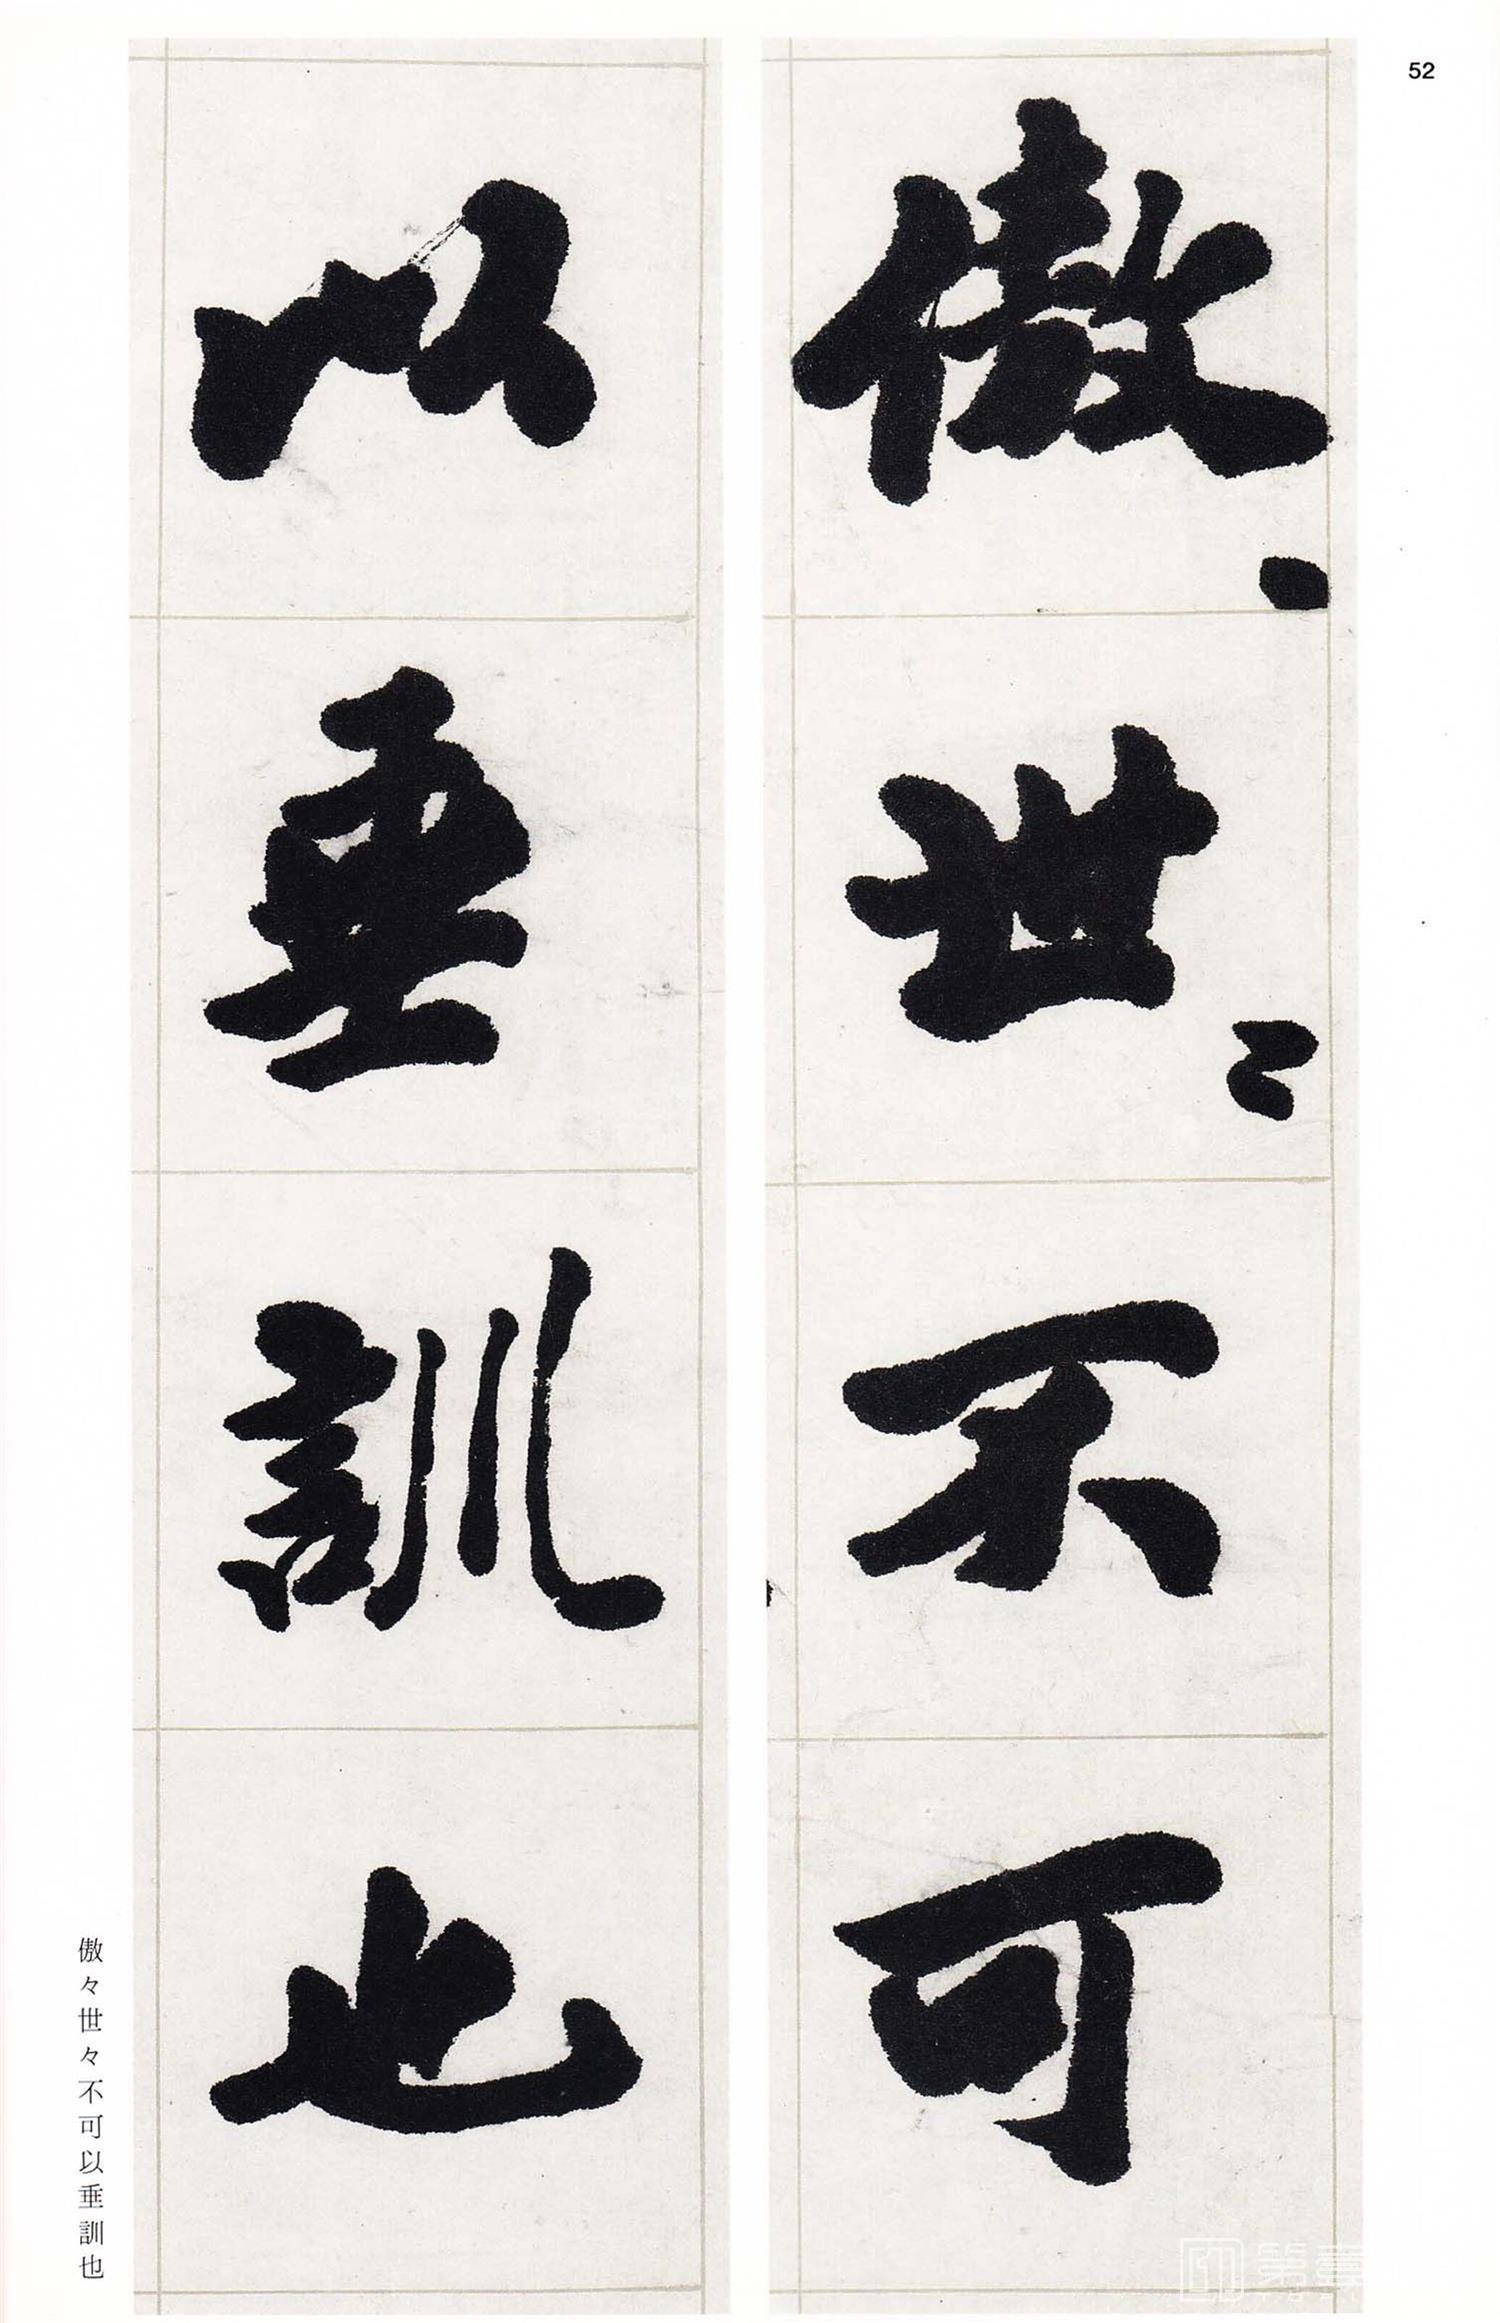 52
傲々世々不可
以垂訓也
傲々世々不可以垂訓也